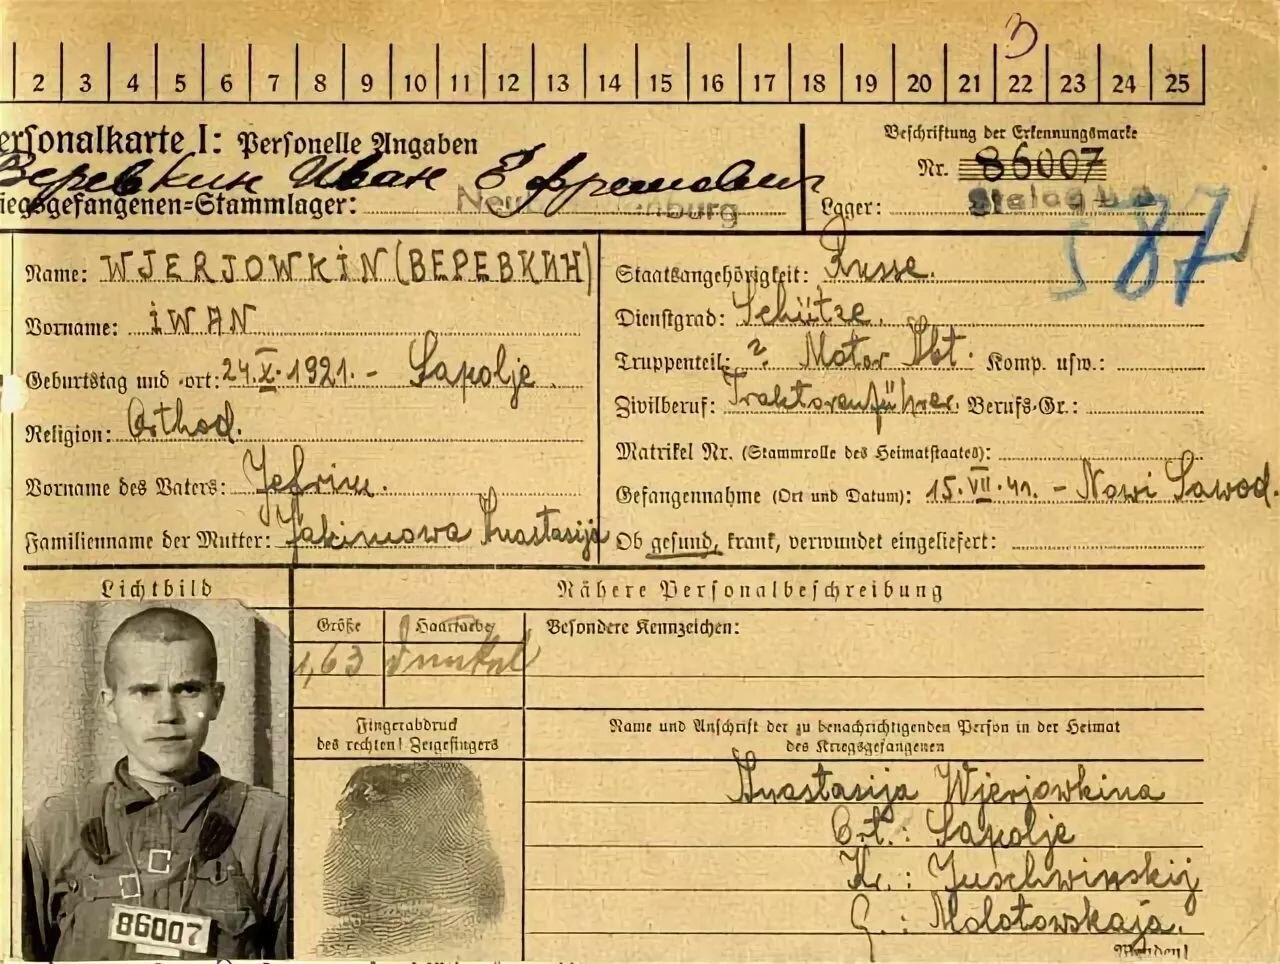 2 3 4 5 6 7 8 9 10 11 12 13 14 15 16 17 18 19 20 21 22 23 24 25
3
ersonalkarte I: Personelle Angaben
Beschriftung der Erkennungsmarke
Nr. 86007
Веревкин Иван Ефремович
iegsgefangenen-Stammlager: Neu burg
Lager: Stalag
587
Name: WJERJOWKIN (ВЕРЕВКИН)
Vorname: IWAN
Geburtstag und -ort: 24.X.1921. - Sapolje
Religion: Orthod.
Vorname des Vaters: Jefrim.
Familienname der Mutter: Jakimowa Anastasija
Staatsangehörigkeit: Russe.
Dienstgrad: Schütze.
Truppenteil: ? Motor Abt. Komp. usw.:
Zivilberuf: Traktorenführer. Berufs-Gr.:
Matrikel Nr. (Stammrolle des Heimatstaates):
Gefangennahme (Ort und Datum): 15.VII.41. - Nowi Sawod.
Ob gesund, krank, verwundet eingeliefert:
Lichtbild
86007
Nähere Personalbeschreibung
Größe Haarfarbe Besondere Kennzeichen:
1,63 dunkel
Fingerabdruck
des rechten! Zeigefingers
Name und Anschrift der zu benachrichtigenden Person in der Heimat
des Kriegsgefangenen
Anastasija Wjerjowkina
Ort.: Sapolje
Kr.: Juschwinskij
G.: Molotowskaja.
Wenden!